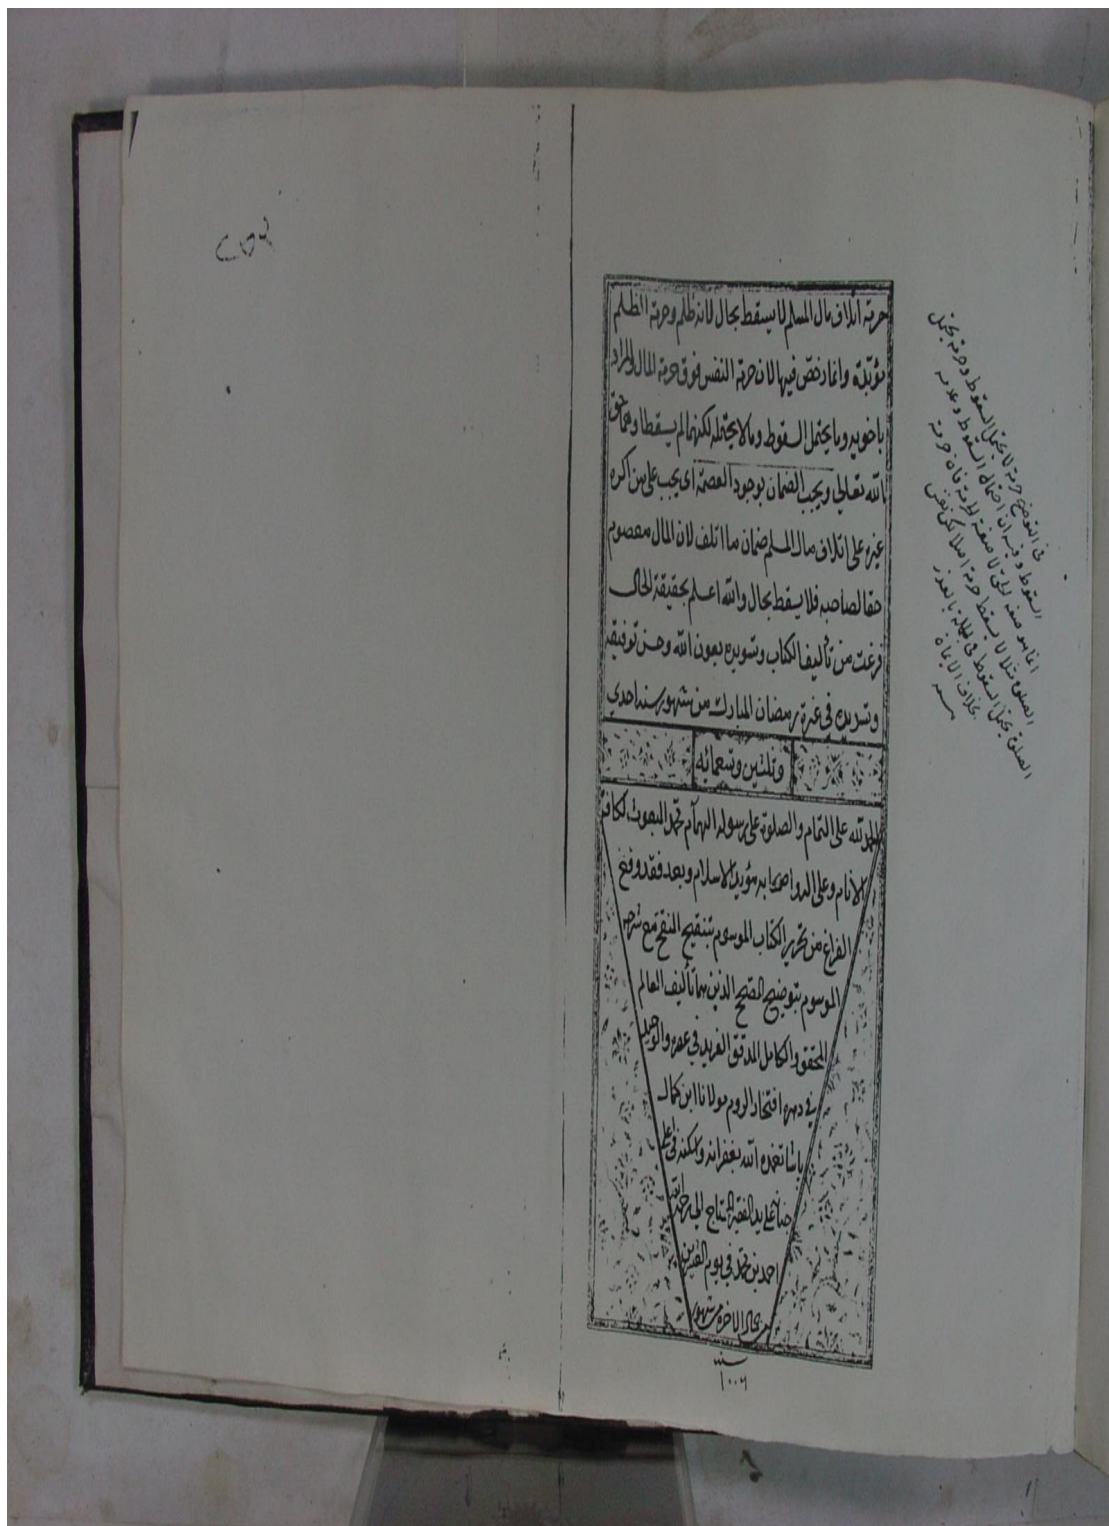 حرمة اتلاف مال المسلم لا يسقط بحال لانه ظلم وحرمة الظلم
مؤبدة وانما رخص فيها لان حرمة النفس فوق حرمة المال والمراد
باخويه وما يحتمل السقوط وما لا يحتمله لكنهما لم يسقطا وهما حق
الله تعالى ويجب الضمان بوجود العصمة اى يجب على من اكره
غيره على اتلاف مال المسلم ضمان ما اتلف لان المال معصوم
حقا لصاحبه فلا يسقط بحال والله اعلم بحقيقة الحال
فرغت من تأليف الكتاب وتسويده بعون الله وحسن توفيقه
وتسديده في غرة رمضان المبارك من شهور سنه احدى
وثلثين وتسعمائه
الحمد لله على التمام والصلوة على رسوله الهمام محمد المبعوث لكافة
الانام وعلى اله واصحابه مؤيد الاسلام وبعد فقد وقع
الفراغ من تحرير الكتاب الموسوم بتنقيح التنقيح مع شرحه
الموسوم بتوضيح التنقيح الذين هما تأليف العالم
المحقق والكامل المدقق الفريد في عصره والوحيد
في دهره افتخار الروم مولانا ابن كمال
باشا تغمده الله بغفرانه واسكنه في اعلى
جنانه على يد الفقير المحتاج الى رحمة الله
احمد بن محمد في يوم
الاخره من شهور
سنه
١٠٠٦
فى التوضيح حرمة لا يحتمل السقوط وحرمة يحتمل
السقوط وفيه ان احتمال السقوط وعدمه
انما هو صفة لا صفة الحرمة فان حرمة
الصلوة مثلا لا يسقط حرمة اصلا لكن نفس
الصلوة يحتمل السقوط فى الجملة بالعذر
بخلاف الايمان